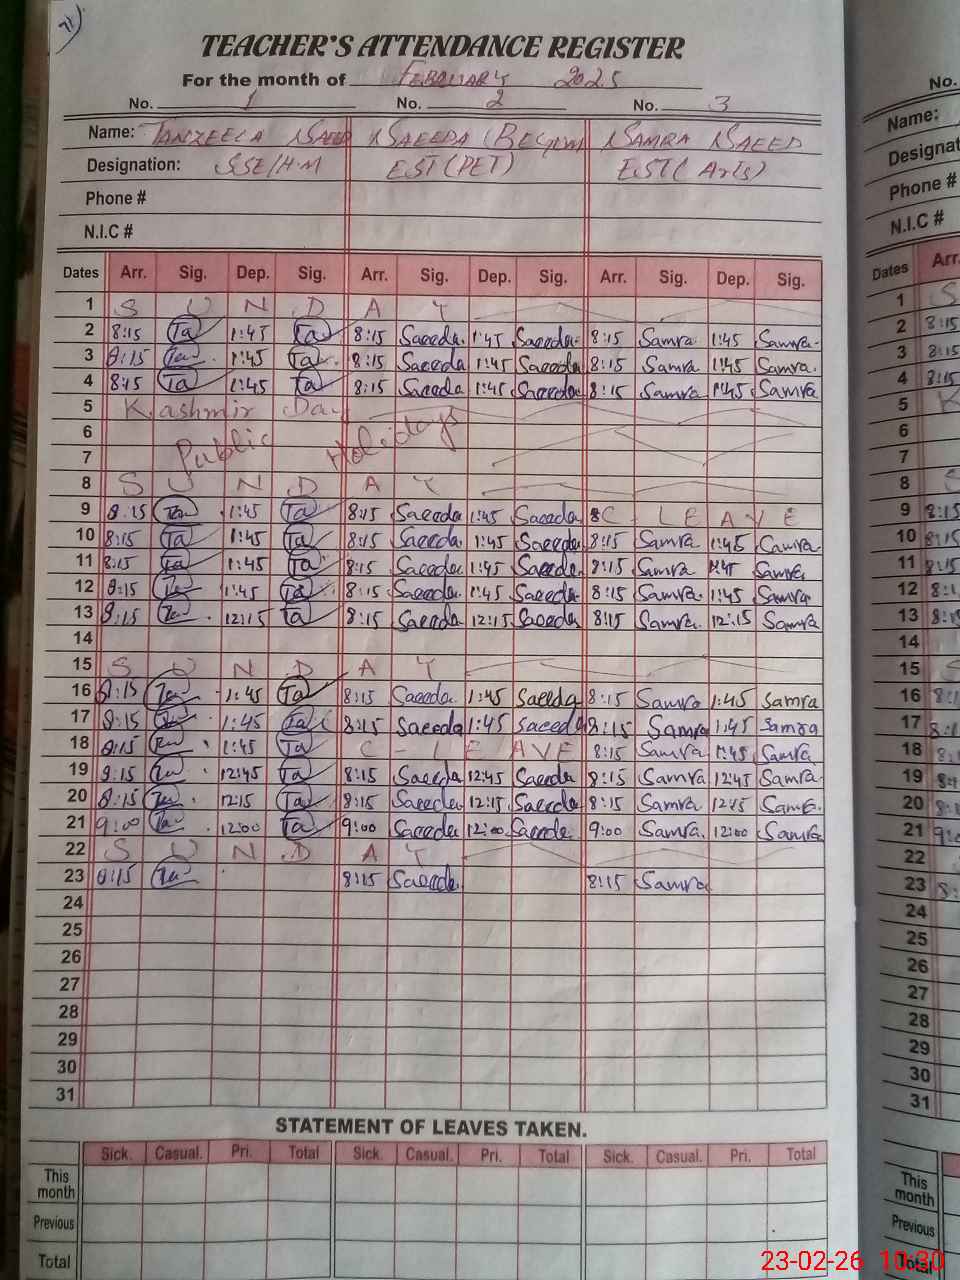 TEACHER'S ATTENDANCE REGISTER
For the month of February 2025
No. 1 No. 2 No. 3
Name: Tanzeela Saeed Saeeda Begum Samra Saeed
Designation: SSE/HM EST (PET) EST (Arts)
Phone #
N.I.C #
Dates Arr. Sig. Dep. Sig. Arr. Sig. Dep. Sig. Arr. Sig. Dep. Sig.
1 S U N D A Y
2 8:15 Ta 1:45 Ta 8:15 Saeeda 1:45 Saeeda 8:15 Samra 1:45 Samra
3 8:15 Ta 1:45 Ta 8:15 Saeeda 1:45 Saeeda 8:15 Samra 1:45 Samra
4 8:15 Ta 1:45 Ta 8:15 Saeeda 1:45 Saeeda 8:15 Samra 1:45 Samra
5 Kashmir Day
6 Public Holidays
7
8 S U N D A Y
9 8:15 Ta 1:45 Ta 8:15 Saeeda 1:45 Saeeda C LEAVE
10 8:15 Ta 1:45 Ta 8:15 Saeeda 1:45 Saeeda 8:15 Samra 1:45 Samra
11 8:15 Ta 1:45 Ta 8:15 Saeeda 1:45 Saeeda 8:15 Samra 1:45 Samra
12 8:15 Ta 1:45 Ta 8:15 Saeeda 1:45 Saeeda 8:15 Samra 1:45 Samra
13 8:15 Ta 12:15 Ta 8:15 Saeeda 12:15 Saeeda 8:15 Samra 12:15 Samra
14
15 S U N D A Y
16 8:15 Ta 1:45 Ta 8:15 Saeeda 1:45 Saeeda 8:15 Samra 1:45 Samra
17 8:15 Ta 1:45 Ta 8:15 Saeeda 1:45 Saeeda 8:15 Samra 1:45 Samra
18 8:15 Ta 1:45 Ta C-LEAVE 8:15 Samra 1:45 Samra
19 8:15 Ta 12:45 Ta 8:15 Saeeda 12:45 Saeeda 8:15 Samra 12:45 Samra
20 8:15 Ta 12:15 Ta 8:15 Saeeda 12:15 Saeeda 8:15 Samra 12:15 Samra
21 9:00 Ta 12:00 Ta 9:00 Saeeda 12:00 Saeeda 9:00 Samra 12:00 Samra
22 S U N D A Y
23 8:15 Ta 8:15 Saeeda 8:15 Samra
24
25
26
27
28
29
30
31
STATEMENT OF LEAVES TAKEN.
Sick. Casual. Pri. Total Sick. Casual. Pri. Total Sick. Casual. Pri. Total
This month
Previous
Total
No.
Name:
Phone #
N.I.C #
Dates Arr.
1 S
2 8:15
3 8:15
4 8:15
5 K
6
7
8
9 8:15
10 8:15
11 8:15
12
13
14
15
16
17
18
19
20
21
22
23
24
25
26
27
28
29
30
31
This month
Previous
Total
23-02-26 10:30